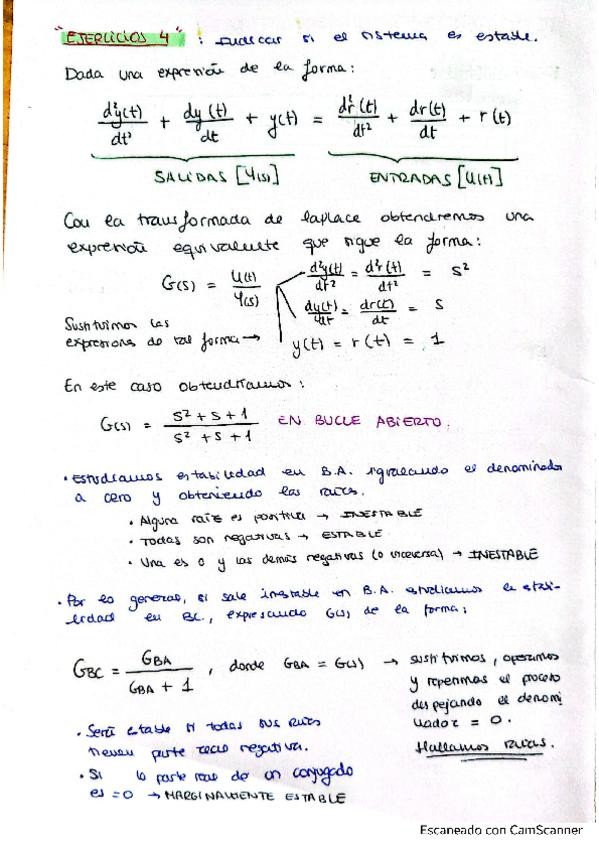 "EJERCICIOS 4" : Indicar si el sistema es estable.
Dada una expresión de la forma:
d²y(t)/dt² + dy(t)/dt + y(t) = d²r(t)/dt² + dr(t)/dt + r(t)
SALIDAS [Y(s)] ENTRADAS [U(t)]
Con la transformada de laplace obtendremos una
expresión equivalente que sigue la forma:
G(s) = U(t)/Y(s)
d²y(t)/dt² = d²r(t)/dt² = s²
dy(t)/dt = dr(t)/dt = s
y(t) = r(t) = 1
Sustituimos las
expresiones de tal forma →
En este caso obtendríamos:
G(s) = s² + s + 1 / s² + s + 1 EN BUCLE ABIERTO.
• Estudiamos estabilidad en B.A. igualando el denominador
a cero y obteniendo las raíces.
• Alguna raíz es positiva → INESTABLE
• Todas son negativas → ESTABLE
• Una es 0 y las demás negativas (o viceversa) → INESTABLE
• Por lo general, si sale inestable en B.A. estudiamos la estabi-
lidad en BC., expresando G(s) de la forma:
GBC = GBA / GBA + 1 , donde GBA = G(s) → sustituimos, operamos
y repetimos el proceso
despejando el denomi
nador = 0.
Hallamos raíces.
• Será estable si todas sus raíces
tienen parte real negativa.
• Si la parte real de un conjugado
es = 0 → MARGINALMENTE ESTABLE
Escaneado con CamScanner